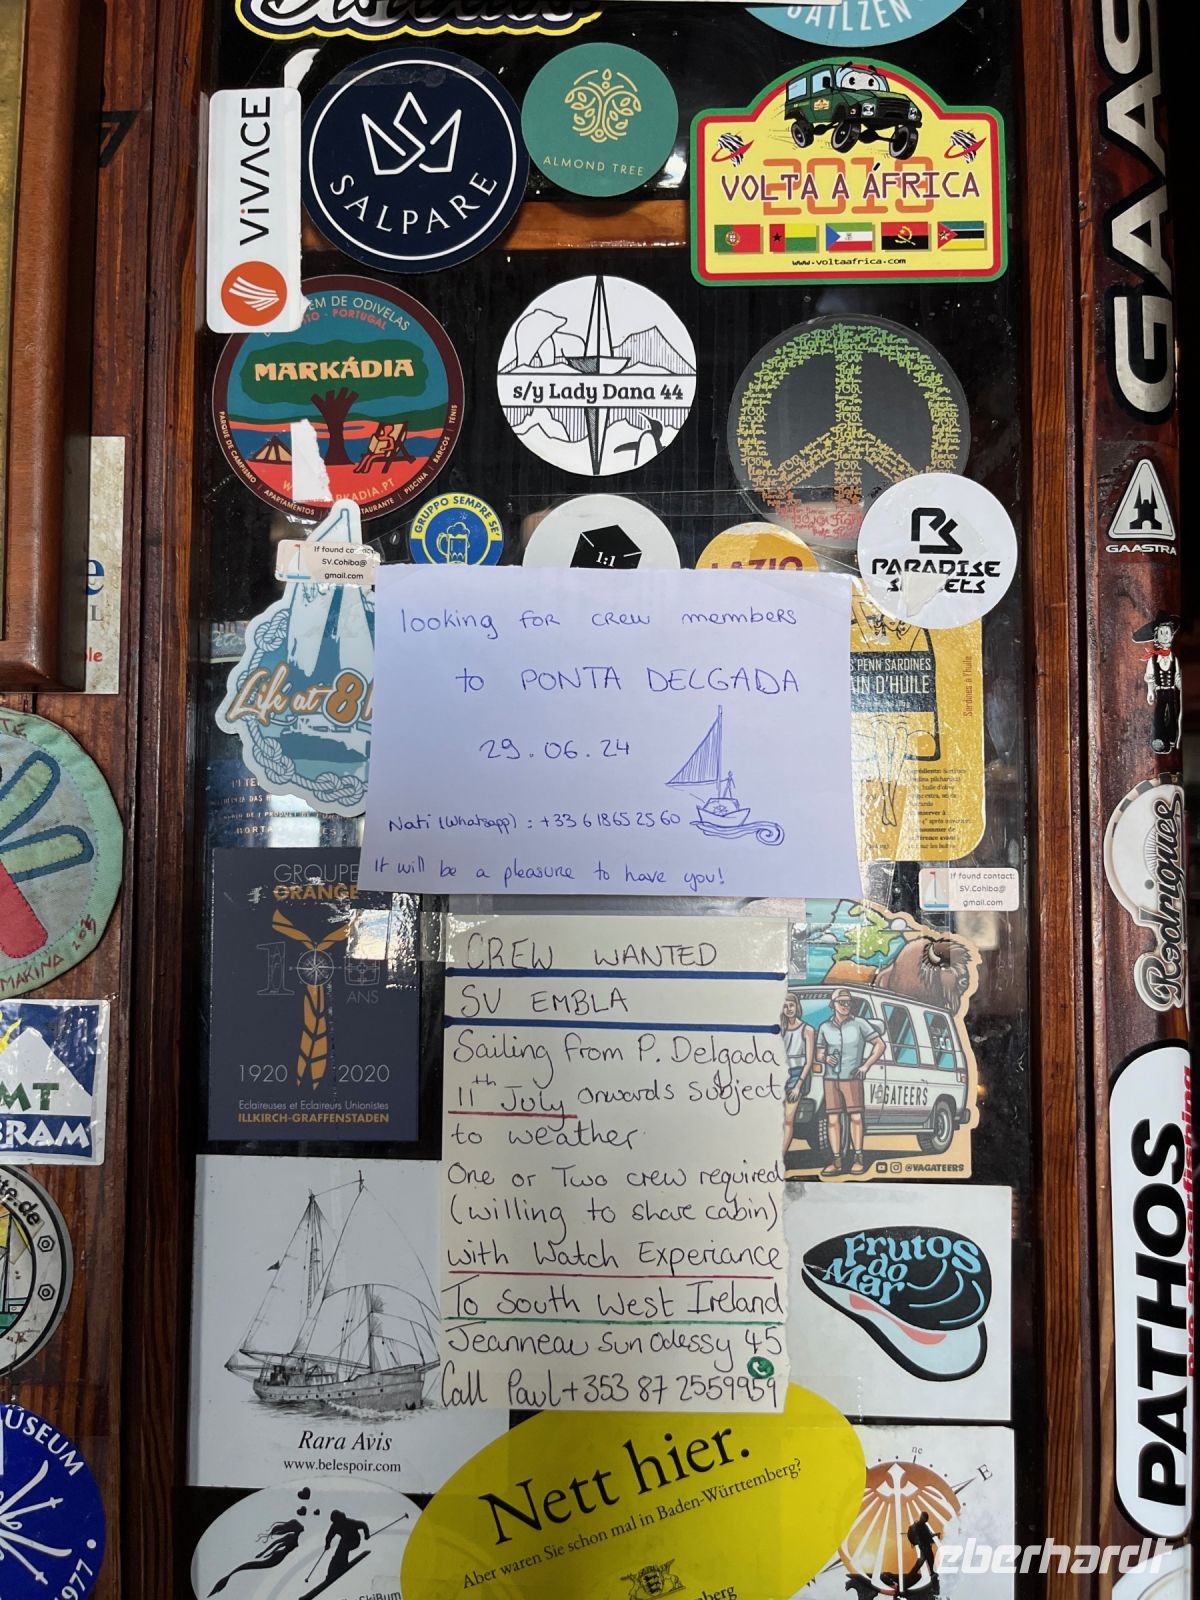 ViVACE
SALPARE
ALMOND TREE
2019
VOLTA A ÁFRICA
www.voltaafrica.com
GAAS
EM DE ODIVELAS
PORTUGAL
MARKÁDIA
PARQUE DE CAMPISMO
APARTAMENTOS
PISCINA
BARCOS
TÉNIS
s/y Lady Dana 44
GRUPPO SEMPRE SE'
1:1
LAZIO
PARADISE
GAASTRA
If found contact:
SV.Cohiba@
gmail.com
Life at 8
looking for crew members
to PONTA DELGADA
29.06.24
Nati (Whatsapp) : +33 6 18 65 25 60
It will be a pleasure to have you!
PENN SARDINES
IN D'HUILE
Sardines à l'huile
Rodriguez
MAKINA
If found contact:
SV.Cohiba@
gmail.com
GROUPE
ORANGE
ANS
1920 2020
Eclaireuses et Eclaireurs Unionistes
ILLKIRCH-GRAFFENSTADEN
CREW WANTED
SV EMBLA
Sailing from P. Delgada
11th July onwards subject
to weather
One or Two crew required
(willing to share cabin)
with Watch Experiance
To South West Ireland
Jeanneau Sun Odessy 45
Call Paul +353 87 2559959
VAGATEERS
@VAGATEERS
MT
BRAM
Frutos
do
Mar
PATHOS
Rara Avis
www.belespoir.com
Nett hier.
Aber waren Sie schon mal in Baden-Württemberg?
ÚSEUM
1977
ne
E
eberhardt